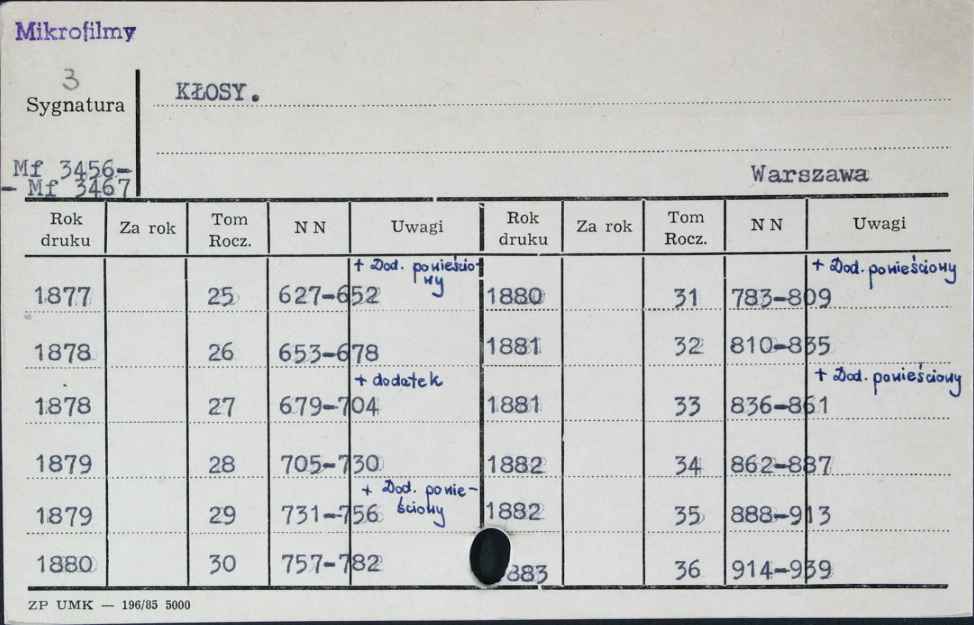 Mikrofilmy
3
Sygnatura
KŁOSY.
Mf 3456-
- Mf 3467
Warszawa
Rok druku Za rok Tom Rocz. N N Uwagi Rok druku Za rok Tom Rocz. N N Uwagi
1877 25 627-652 + Dod. powieściowy 1880 31 783-809 + Dod. powieściowy
1878 26 653-678 1881 32 810-835
1878 27 679-704 + dodatek 1881 33 836-861 + Dod. powieściowy
1879 28 705-730 1882 34 862-887
1879 29 731-756 + Dod. powie-ściowy 1882 35 888-913
1880 30 757-782 883 36 914-939
ZP UMK — 196/85 5000